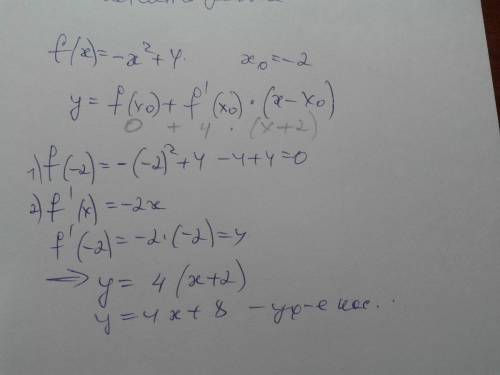 f(x)=-x²+4. x₀=-2
y=f(x₀)+f'(x₀)·(x-x₀)
0 + 4 · (x+2)
1) f(-2)=-(-2)²+4 -4+4=0
2) f'(x)=-2x
f'(-2)=-2·(-2)=4
=> y= 4(x+2)
y=4x+8 -ур-е кас..